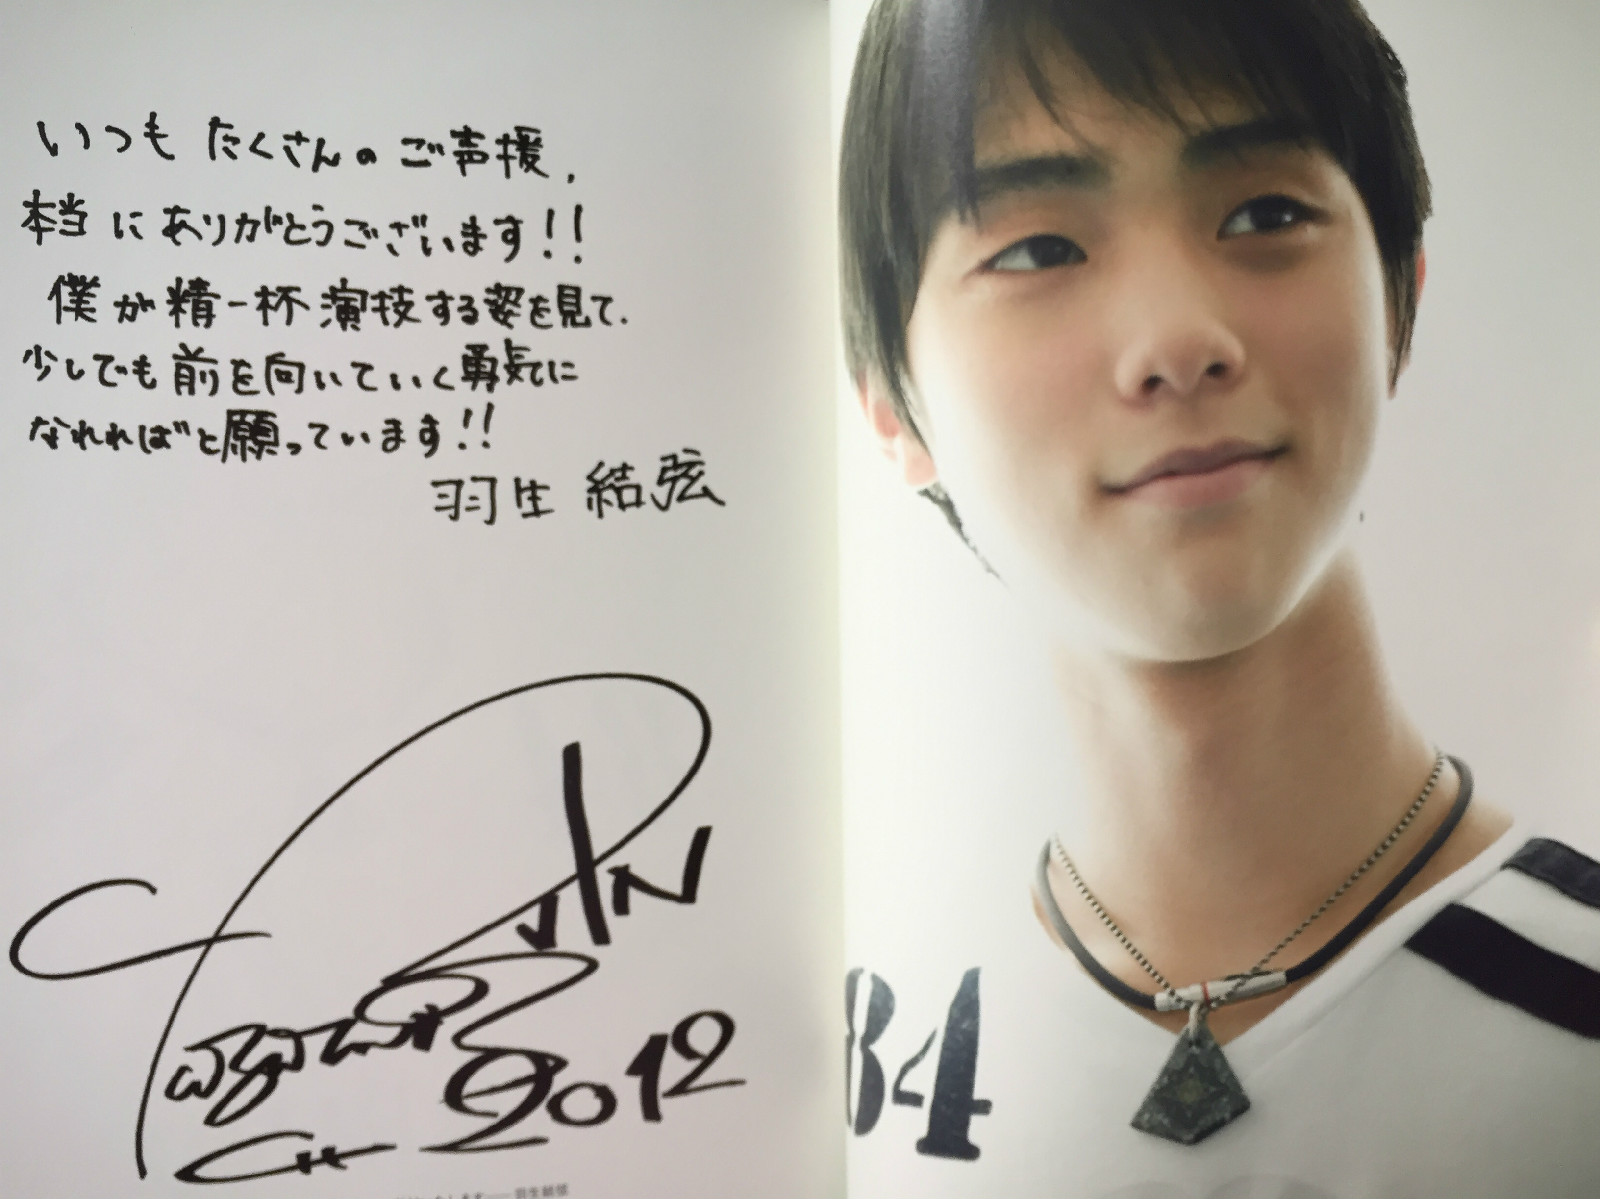 いつも たくさんの ご声援、
本当にありがとうございます!!
僕が精一杯演技する姿を見て、
少しでも前を向いていく勇気に
なれればと願っています!!
羽生 結弦
2012
羽生結弦
84